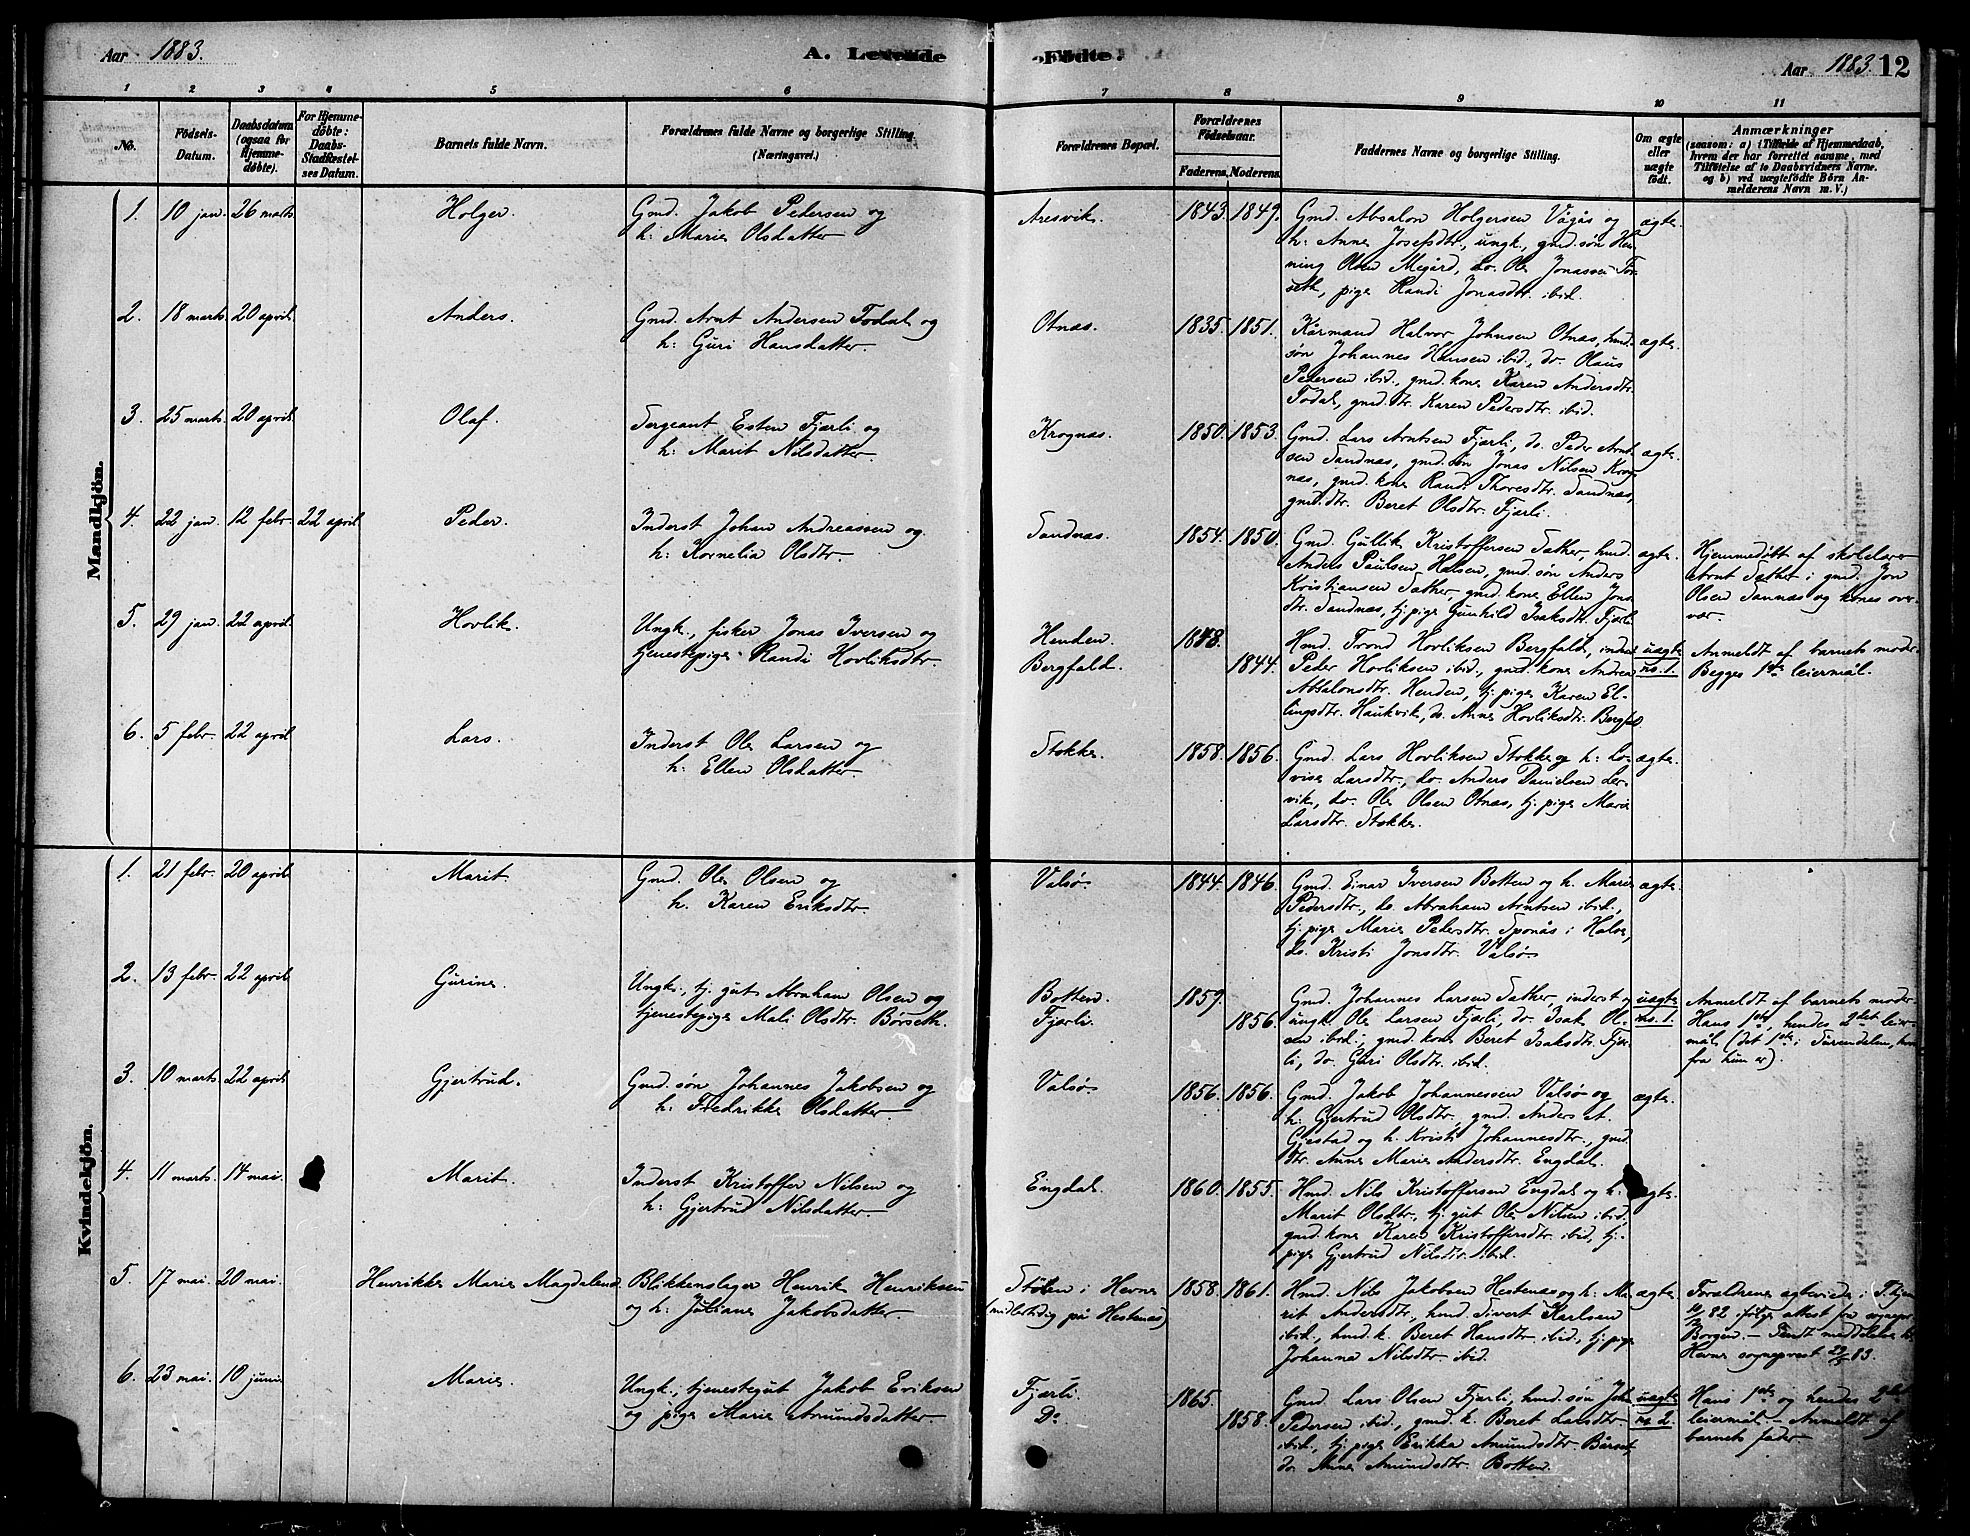 Aar 1883.
A. Levende
Fødte.
Aar 1883. 12
1 2 3 4 5 6 7 8 9 10 11
No.
Fødsels-
Datum.
Daabsdatum
(ogsaa for
Hjemme-
døbte).
For Hjemme-
døbte:
Daabs-
Stadfæstel-
ses Datum.
Barnets fulde Navn.
Forældrenes fulde Navne og borgerlige Stilling.
(Næringsvei.)
Forældrenes Bopæl.
Forældrenes
Fødselsaar.
Faderens. Moderens.
Faddernes Navne og borgerlige Stilling.
Om ægte
eller
uægte
født.
Anmærkninger
(saasom: a) i Tilfælde af Hjemmedaab,
hvem der har forrettet samme, med
Tilføielse af to Daabsvidners Navne,
og b) ved uægtefødte Børn An-
melderens Navn m. V.)
Mandkjön.
1. 10 jan. 26 marts Holger.
Gmd. Jakob Pedersen og
h: Marie Olsdatter
Aresvik. 1843. 1849.
Gmd. Absalon Holgersen Vågås og
h: Anne Josefsdtr., ungk., gmd. søn Hen-
ning Olsen Megård, do. Ole Jonassen For-
seth, pige Randi Jonasdtr. ibid.
ægte.
2. 18 marts. 20 april. Anders.
Gmd. Arnt Andersen Todal og
h: Guri Hansdatter.
Otnæs. 1835. 1851.
Kårmand Halvor Johnsen Otnæs, hmd.
søn Johannes Hansen ibid., do. Olaus
Pedersen ibid., gmd. kone Karen Andersdtr.
Todal, gmd. dtr. Karen Pedersdtr. ibid.
ægte.
3. 25 marts. 20 april. Olaf.
Sergeant Esten Fjærli og
h: Marit Nilsdatter.
Krognæs. 1850. 1853.
Gmd. Lars Arntsen Fjærli, do. Peder Arnt-
sen Sandnæs, gmd. søn Jonas Nilsen Krog-
næs, gmd. kone Randi Thoresdtr. Sandnæs,
gmd. dtr. Beret Olsdtr. Fjærli.
ægte.
4. 22 jan. 12 febr. 22 april Peder.
Inderst Johan Andreassen og
h: Kornelia Olsdtr.
Sandnæs. 1854. 1850.
Gmd. Gullik Kristoffersen Sæther, hmd.
Anders Paulsen Halsen, gmd. søn Anders
Kristiansen Sæther, gmd. kone Ellen Jons-
dtr. Sandnæs, tj. pige Gunhild Isaksdtr. Fjærli
ægte.
Hjemmedøbt af skolelærer
Arnt Sæther i gmd. Jon
Olsen Sannæs og kones over-
vær.
5. 29 jan. 22 april. Hovlik.
Ungk., fisker Jonas Iversen og
tjenestepige Randi Hovliksdtr.
Henden
Bergfald.
1848.
1844.
Hmd. Trond Hovliksen Bergfald, inderst
Peder Hovliksen ibid., gmd. kone Andrea
Absalonsdtr. Henden, tj. pige Karen El-
lingsdtr. Haukvik, do. Anne Hovliksdtr. Bergf.
uægte
no. 1.
Anmeldt af barnets moder
Begges 1ste leiermål.
6. 5 febr. 22 april Lars.
Inderst Ole Larsen og
h: Ellen Olsdatter.
Stokke. 1858. 1856.
Gmd. Lars Hovliksen Stokke og h: Lo-
vise Larsdtr., do. Anders Danielsen Ler-
vik, do. Ole Olsen Otnæs, tj. pige Marie
Larsdtr. Stokke.
ægte.
Kvindekjön.
1. 21 febr. 20 april. Marit.
Gmd. Ole Olsen og
h. Karen Eriksdtr.
Valsø. 1844. 1846.
Gmd. Einar Iversen Botten og h. Marie
Pedersdtr., do. Abraham Arntsen ibid.,
tj. pige Marie Pedersdtr. Sponås i Halse,
do. Kristi Jonsdtr. Valsø.
ægte.
2. 13 febr. 22 april. Gurine.
Ungk., tj. gut Abraham Olsen og
tjenestepige Mali Olsdtr. Børseth.
Botten.
Fjærli.
1859.
1856.
Gmd. Johannes Larsen Sæther, inderst og
ungk. Ole Larsen Fjærli, do. Isak Ol-
sen ibid., gmd. kone Beret Isaksdtr. Fjær-
li, do. Guri Olsdtr. ibid.
uægte
no. 1.
Anmeldt af barnets moder
Hans 1ste, hendes 2det leier-
mål (det 1ste i Surendalen, hvor-
fra hun er).
3. 10 marts. 22 april Gjertrud.
Gmd. søn Johannes Jakobsen og
h: Fredrikke Olsdatter
Valsø 1856. 1856.
Gmd. Jakob Johannessen Valsø og
h: Gjertrud Olsdtr., gmd. Anders et.
Gjestad og h. Kristi Johannesdtr., gmd.
dtr. Anne Marie Andersdtr. Engdal.
ægte.
4. 11 marts. 14 mai. Marit.
Inderst Kristoffer Nilsen og
h: Gjertrud Nilsdatter.
Engdal. 1860. 1855.
Hmd. Nils Kristoffersen Engdal og h:
Marit Olsdtr., tj. gut Ole Nilsen ibid.,
gmd. kone Karen Kristoffersdtr. ibid., tj.
pige Gjertrud Nilsdtr. ibid.
ægte.
5. 17 mai. 20 mai. Henrikke Marie Magdalena.
Blikkenslager Henrik Henriksen
og h: Juliane Jakobsdatter.
Stølen i Hevne
(midlertidig på Hestenæs)
1858. 1861.
Hmd. Nils Jakobsen Hestenæs og h: Ma-
rit Andersdtr., hmd. Sivert Karlsen
ibid., hmd. k. Beret Hansdtr. ibid., tj. pige
Johanna Nilsdtr. ibid.
ægte.
Forældrene ægteviede i T.hjem
82 ifølge attest fra sognepr.
Borgen. – Sendt meddelelse til
Hevne sogneprest 83.
6. 23 mai. 10 juni. Marie.
Ungk., tjenestegut Jakob Eriksen
og pige Marie Amundsdatter
Fjærli.
Do
1865.
1858.
Gmd. Lars Olsen Fjærli, hmd. søn John
Pedersen ibid., gmd. k. Beret Larsdtr.
ibid., tj. pige Erikka Amundsdtr. Børset,
do. Anne Amundsdtr. Botten.
uægte
no 2.
Hans 1ste og hendes 2det
leiermål. – Anmeldt af
barnets fader